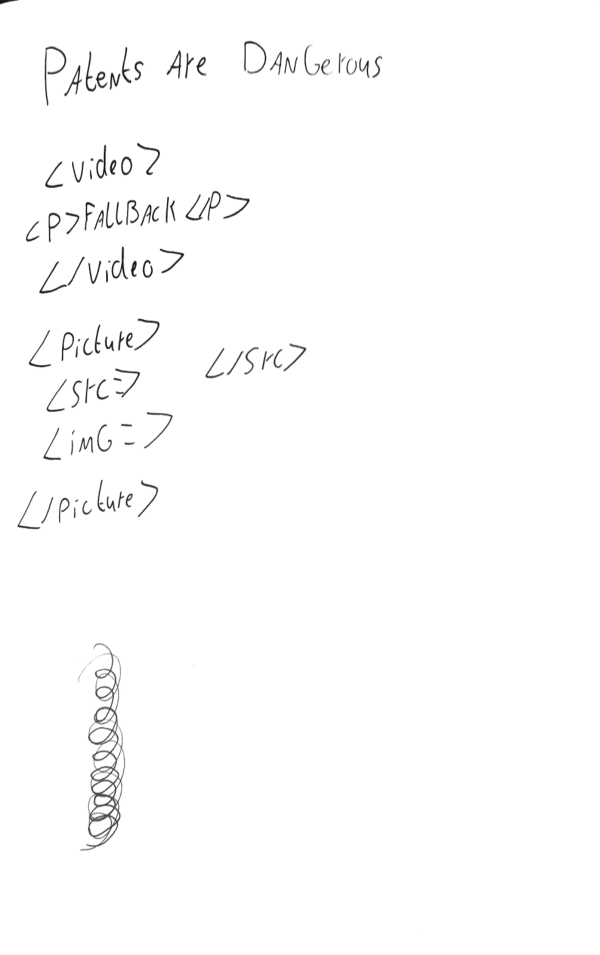 Patents Are Dangerous
<video>
<P>FALLBACK</P>
</video>
<Picture>
<src=> </src>
<imG=>
</picture>